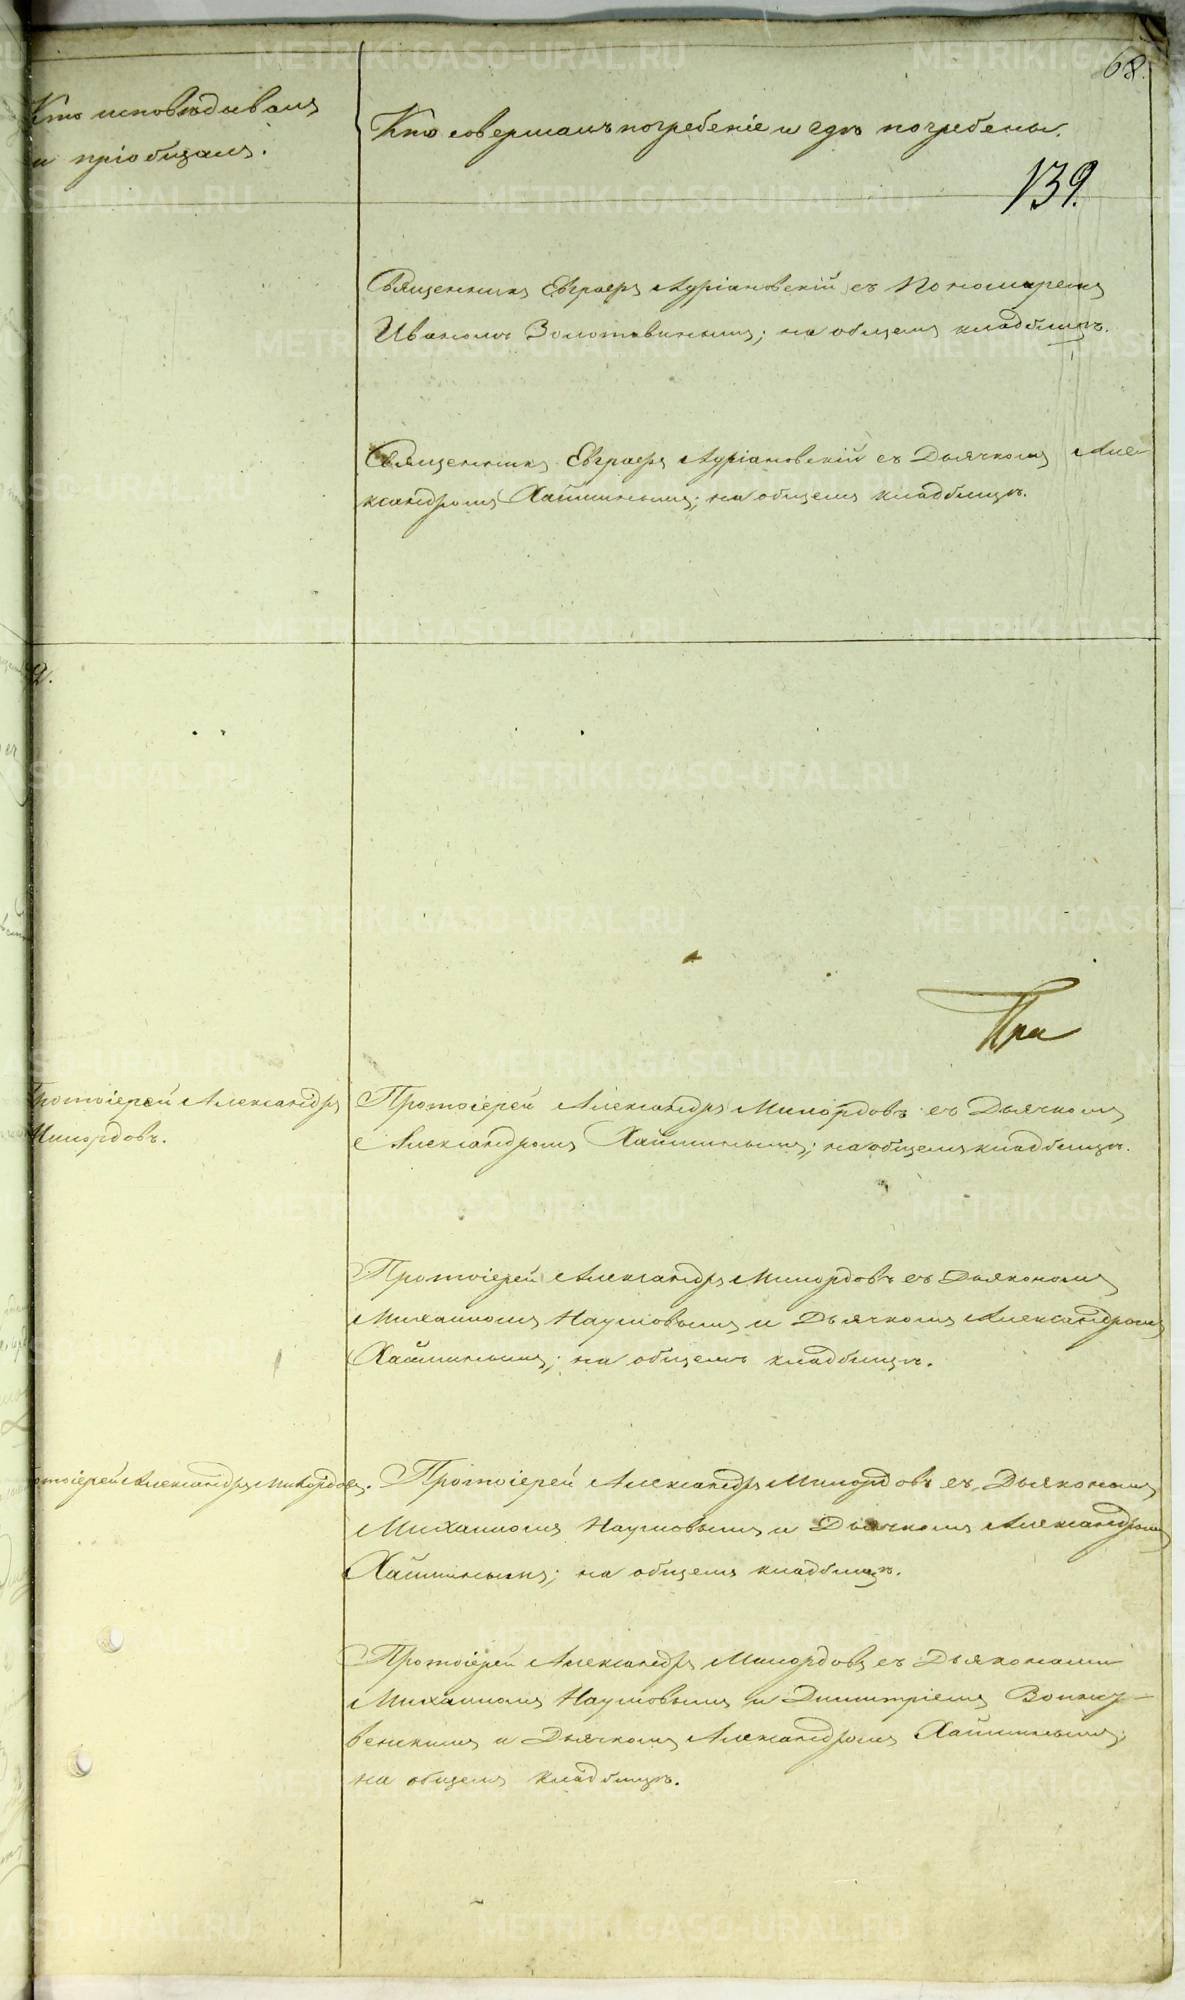 68.
Кто исповѣдывалъ
и пріобщалъ.
Кто совершалъ погребеніе и гдѣ погребены.
139.
Священникъ Евграфъ Луріановскій съ Пономаремъ
Иваномъ Золотавинымъ; на общемъ кладбищѣ.
Священникъ Евграфъ Луріановскій съ Дьячкомъ Але-
ксандромъ Хайминымъ; на общемъ кладбищѣ.
При
Протоіерей Александръ
Милордовъ.
Протоіерей Александръ Милордовъ съ Дьячкомъ
Александромъ Хайминымъ; на общемъ кладбищѣ.
Протоіерей Александръ Милордовъ съ Дьякономъ
Михаиломъ Наумовымъ и Дьячкомъ Александромъ
Хайминымъ; на общемъ кладбищѣ.
Протоіерей Александръ Милордовъ.
Протоіерей Александръ Милордовъ съ Дьякономъ
Михаиломъ Наумовымъ и Дьячкомъ Александромъ
Хайминымъ; на общемъ кладбищѣ.
Протоіерей Александръ Милордовъ съ Дьяконами
Михаиломъ Наумовымъ и Димитріемъ
и Дьячкомъ Александромъ Хайминымъ;
на общемъ кладбищѣ.
METRIKI.GASO-URAL.RU